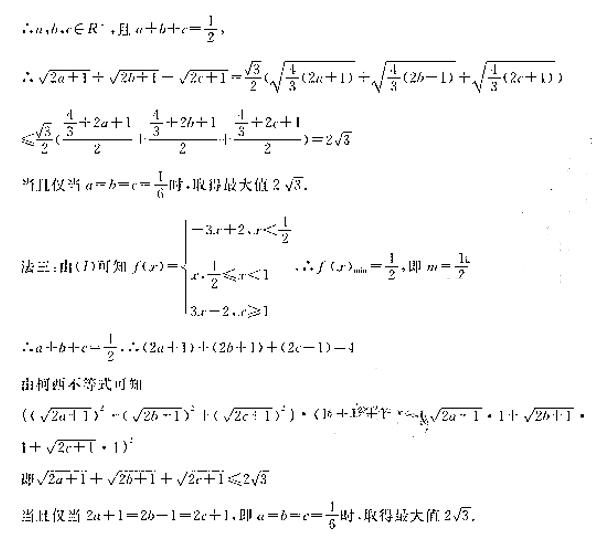 ∴a,b,c∈R⁺,且a+b+c=1/2,
∴√(2a+1)+√(2b+1)+√(2c+1)=√3/2(√(4/3(2a+1))+√(4/3(2b+1))+√(4/3(2c+1)))
≤√3/2((4/3+2a+1)/2+(4/3+2b+1)/2+(4/3+2c+1)/2)=2√3
当且仅当a=b=c=1/6时,取得最大值2√3.
法三:由(I)可知f(x)={-3x+2,x<1/2
x,1/2≤x<1
3x-2,x≥1
,∴f(x)min=1/2,即m=1/2
∴a+b+c=1/2,∴(2a+1)+(2b+1)+(2c+1)=4
由柯西不等式可知
((√(2a+1))²+(√(2b+1))²+(√(2c+1))²)·(√(2a+1)·1+√(2b+1)·
1+√(2c+1)·1)²
即√(2a+1)+√(2b+1)+√(2c+1)≤2√3
当且仅当2a+1=2b+1=2c+1,即a=b=c=1/6时,取得最大值2√3.